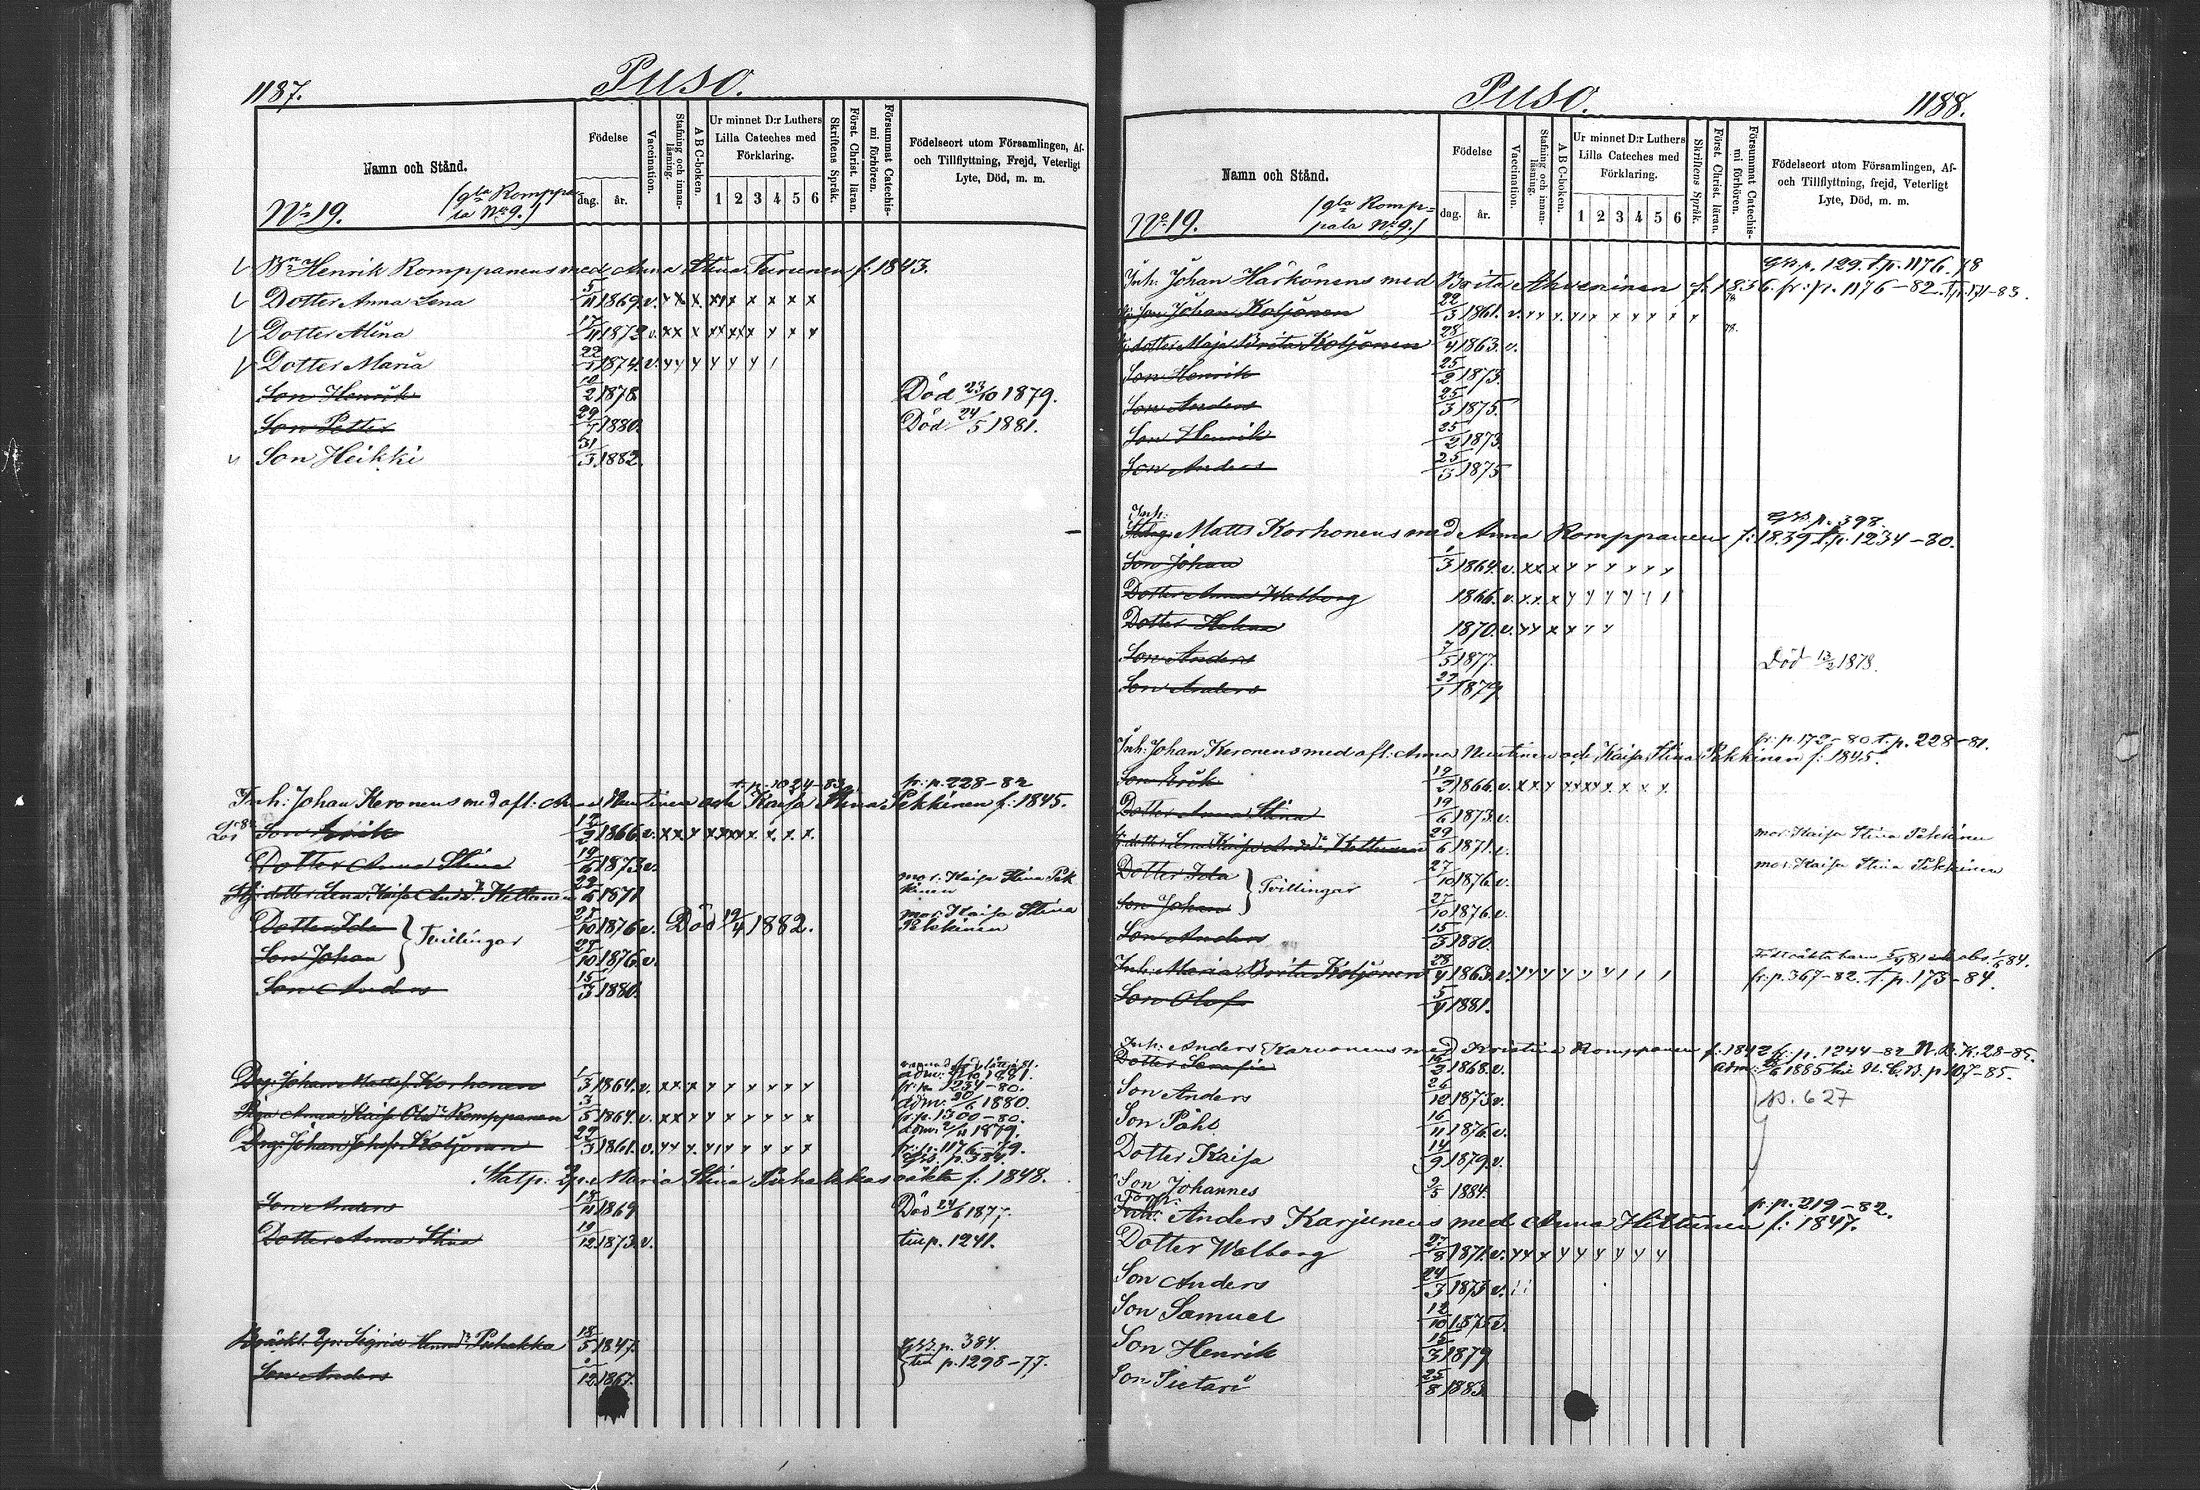 1187.
Puso.
Namn och Stånd.
Födelse
dag. år.
Vaccination.
Stafning och innan-läsning.
ABC-boken.
Ur minnet D:r Luthers Lilla Cateches med Förklaring.
1 2 3 4 5 6
Skriftens Språk.
Först. Christ. läran.
Försummat Catechis-mi förhören.
Födelseort utom Församlingen, Af- och Tillflyttning, Frejd, Veterligt Lyte, Död, m. m.
No 19. (gla Romppa-la No 9.)
Henrik Romppanens med Anna Stina Turunen f: 1843.
Dotter Anna Lena 5/11 1869 v.
Dotter Alina 17/11 1872 v.
Dotter Maria 22/1 1874 v.
Son Henrik 10/2 1878 Död 23/10 1879.
Son Petter 29/7 1880. Död 24/5 1881.
Son Heikki 31/3 1882.
t.p. 1024-83 fr: p. 228-82
Inh: Johan Keronens med afl: Anna Nuutinen och Kaisa Stina Pekkinen f: 1845.
Son Erik 12/2 1866 v.
Dotter Anna Stina 19/6 1873 v.
dotter Lena Kaisa And:Dr Kettunen 1871 mor. Kaisa Stina Pekkinen
Dotter Ida 27/10 1876 v. Död 19/4 1882. mor Kaisa Stina Pekkinen
Tvillingar
Son Johan 27/10 1876 v.
Son Anders 15/3 1880.
Drg: Johan Matts: Korhonen 1/3 1864 v. fr: p. 1234-80.
Pga Anna Kaisa Olofs Dr Romppanen 3/5 1864 v. adm: 20/6 1880. fr: p. 1300-80.
Drg: Johan Kotjonen 22/3 1861 v. fr: p. 1176-79.
Gkb. p. 384.
Statp: Maria Stina Puhakkas oäkta f: 1848.
Son Anders 18/11 1869 Död 24/6 1877.
Dotter Anna Stina 19/12 1873 v. till p. 1241.
Sigrid Puhakka 18/5 1847. Gkb. p. 384.
till p. 1298-77.
Son Anders 12 1867.
1188.
Puso.
Namn och Stånd.
Födelse
dag. år.
Vaccination.
Stafning och innan-läsning.
ABC-boken.
Ur minnet D:r Luthers Lilla Cateches med Förklaring.
1 2 3 4 5 6
Skriftens Språk.
Först. Christ. läran.
Försummat Catechis-mi förhören.
Födelseort utom Församlingen, Af- och Tillflyttning, frejd, Veterligt Lyte, Död, m. m.
No 19. (gla Romp-pala No 9.)
Gkb p. 129. t.p. 1176 78
Inh: Johan Härkönens med Brita Ahveninen fr: p. 1176-82.
Son Johan Kotjonen 22/3 1861. v.
dotter Maja Brita Kotjonen 28/4 1863. v.
Son Henrik 25/2 1873.
Son Anders 25/3 1875.
Son Henrik 25/2 1873
Son Anders 25/3 1875
Gkb p. 398.
Inh: Matts Korhonens med Anna Romppanen f: 1839 t.p. 1234-80.
Son Johan 1/3 1864 v.
Dotter Anna Walborg 1866. v.
Dotter Helena 1870. v.
Son Anders 7/5 1877. Död 13/2 1878.
Son Anders 27/1 1879
fr: p. 172-80 t.p. 228-81.
Inh: Johan Keronens med afl: Anna Nuutinen och Kaisa Stina Pekkinen f: 1845.
Son Erik 12/2 1866. v.
Dotter Anna Stina 19/6 1873. v.
dotter Lena Kaisa And:Dr Kettunen 29/6 1871. v. mor: Kaisa Stina Pekkinen
Dotter Ida 27/10 1876. v. mor. Kaisa Stina Pekkinen
Tvillingar
Son Johan 27/10 1876. v.
Son Anders 15/3 1880.
Inh: Maria Brita Kotjonen 28/4 1863. v. fr: p. 367-82. t.p. 173-84.
Son Olof 5/4 1881.
Inh: Anders Karvonens med Kristina Romppanen f: 1842 fr: p. 1244-82 N.B.K. 28-85.
Dotter Sanfia 1868. v.
Son Anders 26/12 1873 v.
Son Påhl 16/11 1876. v. No. 627
Dotter Kaisa 14/9 1879. v.
Son Johannes 9/5 1884.
fr. p. 219-82.
Torp: Anders Karjunens med Anna Hiltunen f: 1847.
Dotter Walborg 27/8 1871. v.
Son Anders 24/3 1873 v.
Son Samuel 12/10 1875 v.
Son Henrik 15/3 1879
Son Pietari 25/8 1883